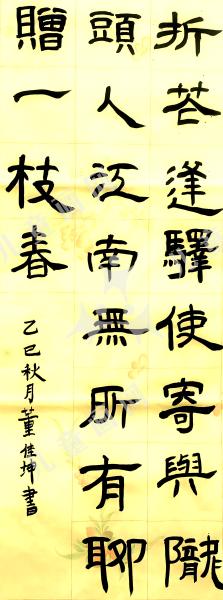 折芲逢驛使寄與隴
頭人江南無所有聊
贈一枝春
乙巳秋月董佳坤書